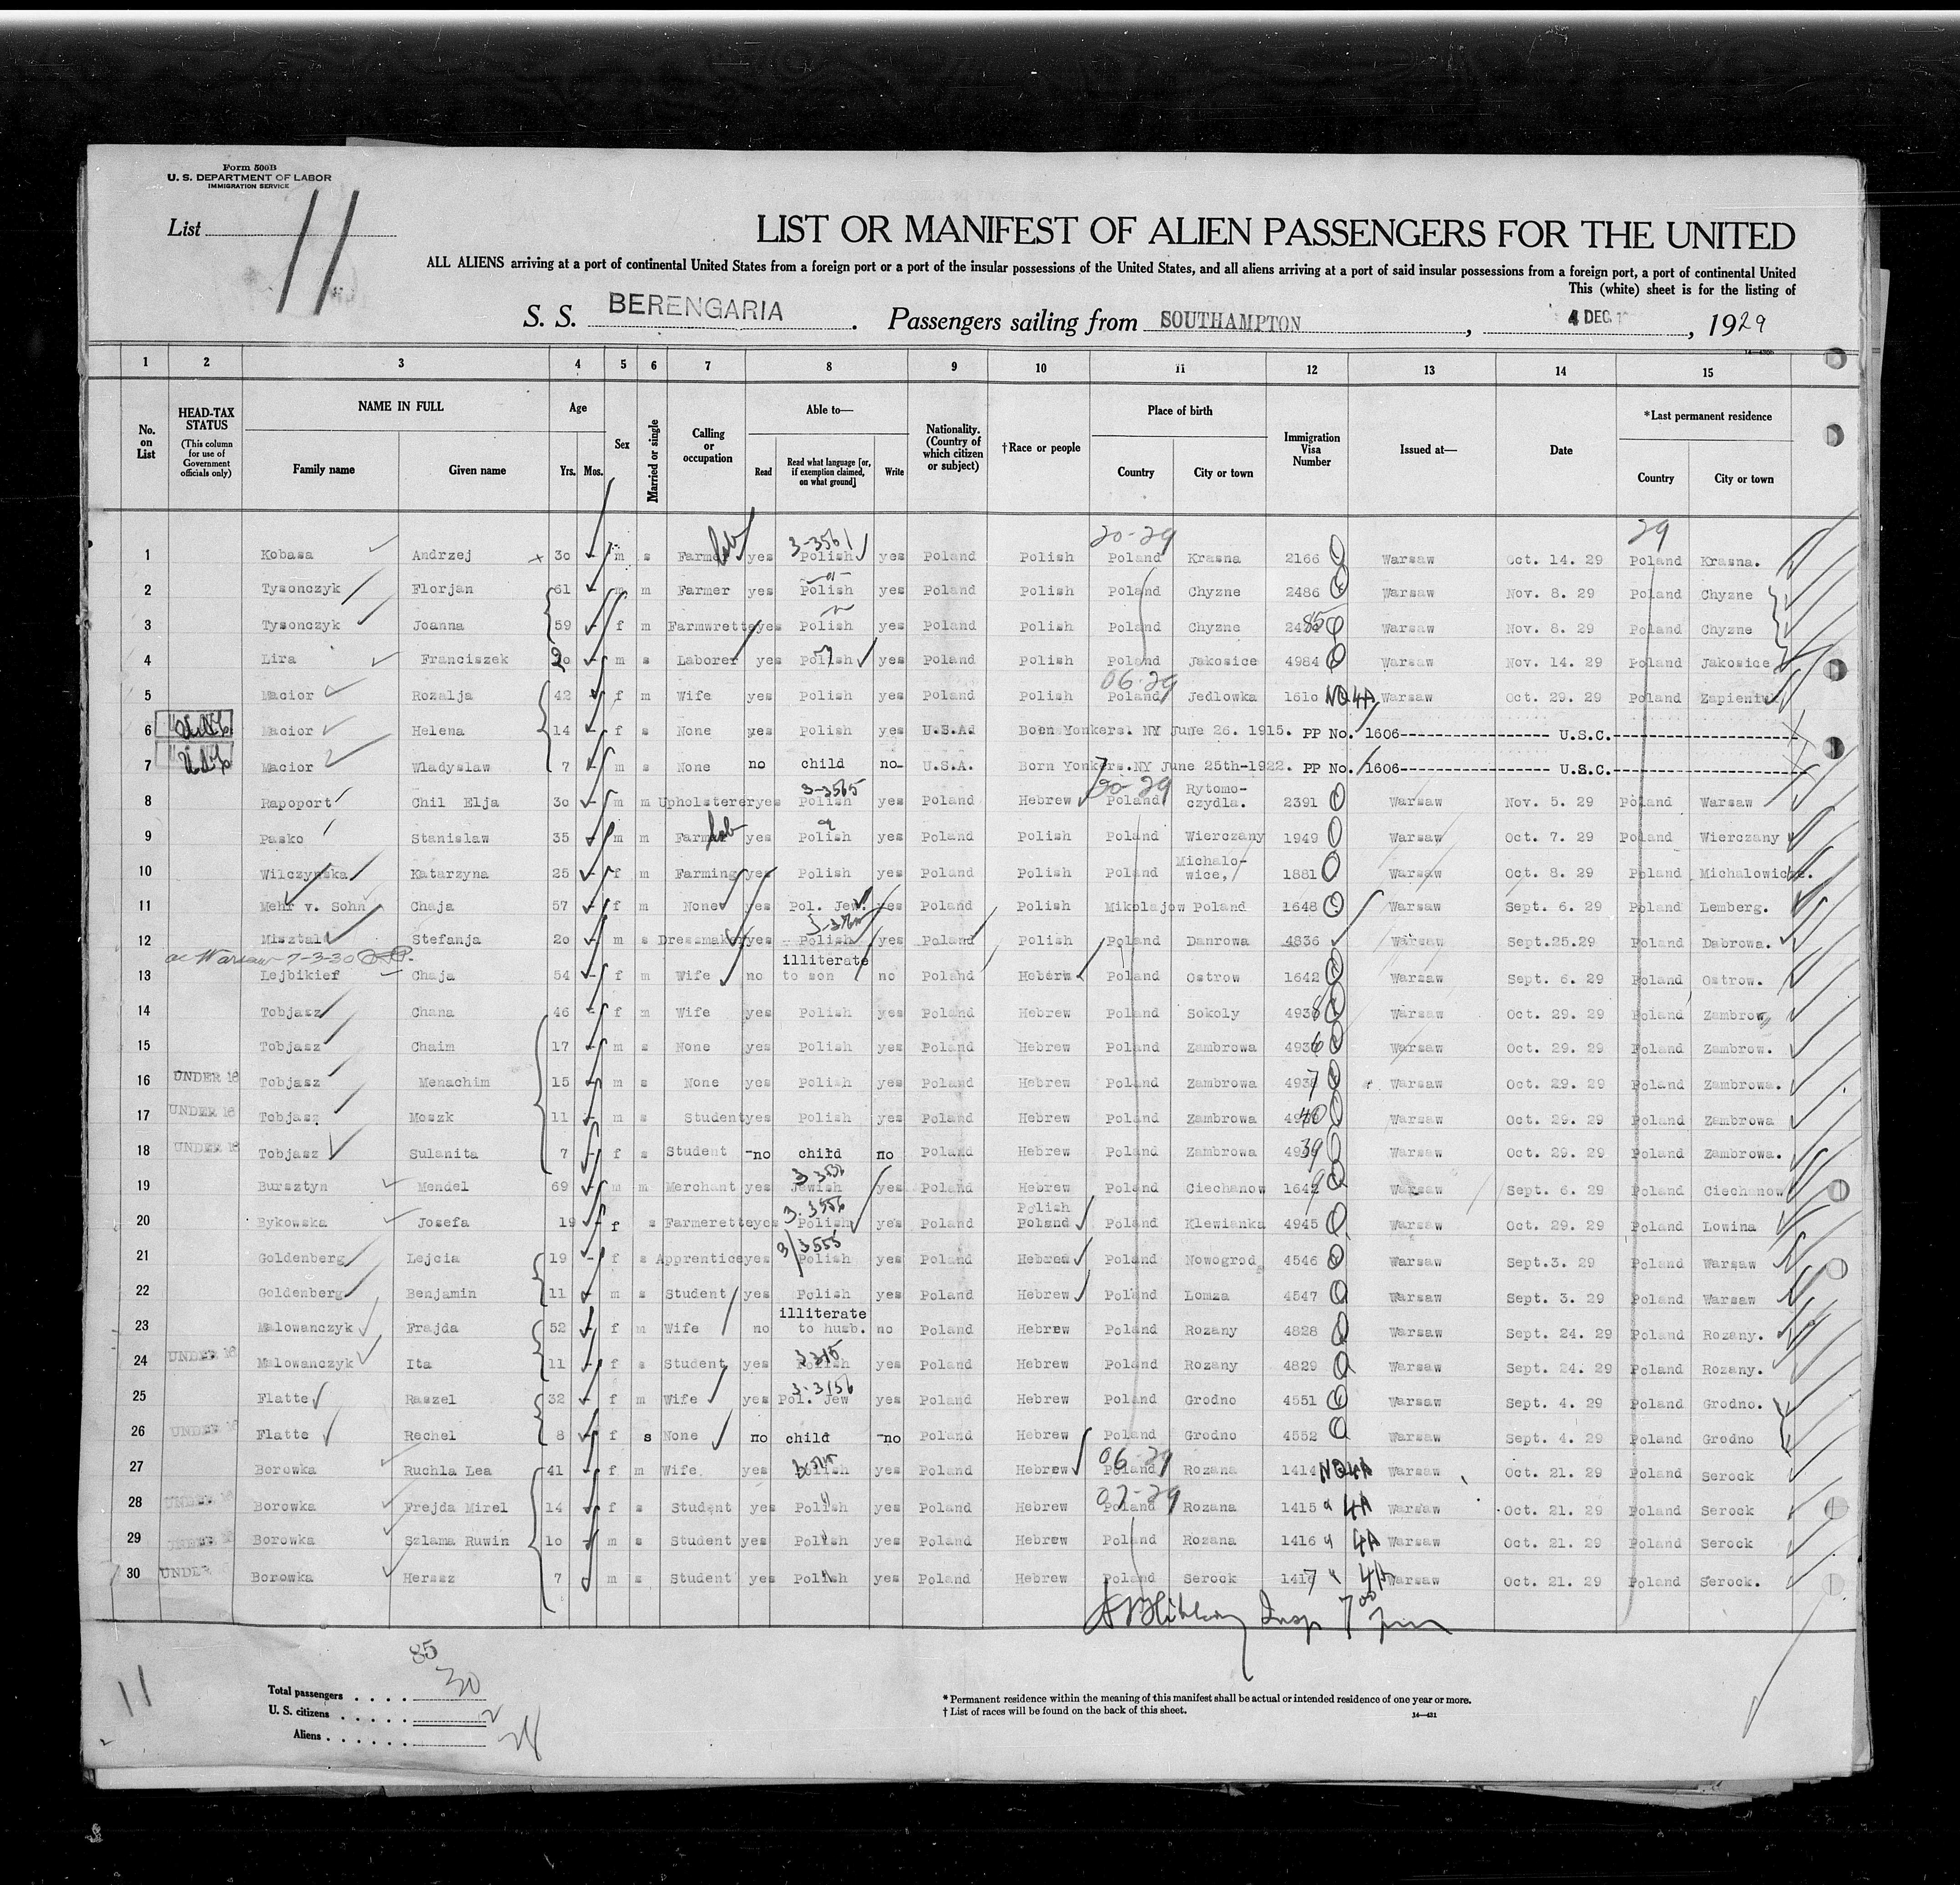 Form 500B
U. S. DEPARTMENT OF LABOR
IMMIGRATION SERVICE
List 11
LIST OR MANIFEST OF ALIEN PASSENGERS FOR THE UNITED
ALL ALIENS arriving at a port of continental United States from a foreign port or a port of the insular possessions of the United States, and all aliens arriving at a port of said insular possessions from a foreign port, a port of continental United
This (white) sheet is for the listing of
S. S. BERENGARIA. Passengers sailing from SOUTHAMPTON, 4 DEC, 1929
1 2 3 4 5 6 7 8 9 10 11 12 13 14 15
No. on List
HEAD-TAX STATUS (This column for use of Government officials only)
NAME IN FULL Family name Given name
Age Yrs. Mos.
Sex
Married or single
Calling or occupation
Able to— Read Read what language [or, if exemption claimed, on what ground] Write
Nationality. (Country of which citizen or subject)
†Race or people
Place of birth Country City or town
Immigration Visa Number
Issued at—
Date
*Last permanent residence Country City or town
20-29 29
1 Kobasa Andrzej 30 m s Farmer lab yes 3-3561 Polish yes Poland Polish Poland Krasna 2166 Warsaw Oct. 14. 29 Poland Krasna.
2 Tysonczyk Florjan 61 m m Farmer yes Polish yes Poland Polish Poland Chyzne 2486 Warsaw Nov. 8. 29 Poland Chyzne
3 Tysonczyk Joanna 59 f m Farmwrette yes Polish yes Poland Polish Poland Chyzne 2485 Warsaw Nov. 8. 29 Poland Chyzne
4 Lira Franciszek 20 m s Laborer yes Polish yes Poland Polish Poland Jakosice 4984 Warsaw Nov. 14. 29 Poland Jakosice
06-29
5 Macior Rozalja 42 f m Wife yes Polish yes Poland Polish Poland Jedlowka 1610 NQ 4A Warsaw Oct. 29. 29 Poland Zapieniu
6 Macior Helena 14 f s None yes Polish yes U.S.A. Born Yonkers. NY June 26. 1915. PP No. 1606 U.S.C.
7 Macior Wladyslaw 7 m s None no child no U.S.A. Born Yonkers.NY June 25th-1922. PP No. 1606 U.S.C.
8 Rapoport Chil Elja 30 m m Upholsterer yes 3-3565 Polish yes Poland Hebrew 20-29 Poland Rytomo-czydla. 2391 Warsaw Nov. 5. 29 Poland Warsaw
9 Pasko Stanislaw 35 m m Farmer lab yes Polish yes Poland Polish Poland Wierczany 1949 Warsaw Oct. 7. 29 Poland Wierczany
10 Wilczynska Katarzyna 25 f m Farming yes Polish yes Poland Polish Poland Michalo-wice, 1881 Warsaw Oct. 8. 29 Poland Michalowice.
11 Mehr v. Sohn Chaja 57 f m None yes Pol. Jew. yes Poland Polish Mikolajow Poland 1648 Warsaw Sept. 6. 29 Poland Lemberg.
12 Misztal Stefanja 20 m s Dressmaker yes Polish yes Poland Polish Poland Danrowa 4836 Warsaw Sept.25.29 Poland Dabrowa.
Warsaw-7-3-30
13 Lejbikief Chaja 54 f m Wife no illiterate to son no Poland Heberw Poland Ostrow 1642 Warsaw Sept. 6. 29 Poland Ostrow.
14 Tobjasz Chana 46 f m Wife yes Polish yes Poland Hebrew Poland Sokoly 4938 Warsaw Oct. 29. 29 Poland Zambrow
15 Tobjasz Chaim 17 m s None yes Polish yes Poland Hebrew Poland Zambrowa 4936 Warsaw Oct. 29. 29 Poland Zambrow.
16 UNDER 16 Tobjasz Menachim 15 m s None yes Polish yes Poland Hebrew Poland Zambrowa 4937 Warsaw Oct. 29. 29 Poland Zambrowa.
17 UNDER 16 Tobjasz Moszk 11 m s Student yes Polish yes Poland Hebrew Poland Zambrowa 4940 Warsaw Oct. 29. 29 Poland Zambrowa
18 UNDER 16 Tobjasz Sulanita 7 f s Student no child no Poland Hebrew Poland Zambrowa 4939 Warsaw Oct. 29. 29 Poland Zambrowa.
19 Bursztyn Mendel 69 m m Merchant yes Jewish yes Poland Hebrew Poland Ciechanow 1642 Warsaw Sept. 6. 29 Poland Ciechanow
20 Bykowska Josefa 19 f s Farmerette yes 3-3556 Polish yes Poland Polish Poland Poland Klewianka 4945 Warsaw Oct. 29. 29 Poland Lowina
21 Goldenberg Lejcia 19 f s Apprentice yes 3/3555 Polish yes Poland Hebrew Poland Nowogrod 4546 Warsaw Sept.3. 29 Poland Warsaw
22 Goldenberg Benjamin 11 m s Student yes Polish yes Poland Hebrew Poland Lomza 4547 Warsaw Sept. 3. 29 Poland Warsaw
23 Malowanczyk Frajda 52 f m Wife no illiterate to husb. no Poland Hebrew Poland Rozany 4828 Warsaw Sept. 24. 29 Poland Rozany.
24 UNDER 16 Malowanczyk Ita 11 f s Student yes Polish yes Poland Hebrew Poland Rozany 4829 Warsaw Sept. 24. 29 Poland Rozany.
25 Flatte Raszel 32 f m Wife yes 3-3156 Pol. Jew yes Poland Hebrew Poland Grodno 4551 Warsaw Sept. 4. 29 Poland Grodno.
26 UNDER 16 Flatte Rechel 8 f s None no child no Poland Hebrew Poland Grodno 4552 Warsaw Sept. 4. 29 Poland Grodno
27 Borowka Ruchla Lea 41 f m Wife. yes Polish yes Poland Hebrew 06-29 Poland Rozana 1414 NQ 4A Warsaw Oct. 21. 29 Poland Serock
28 UNDER 16 Borowka Frejda Mirel 14 f s Student yes Polish yes Poland Hebrew 07-29 Poland Rozana 1415 " 4A Warsaw Oct. 21. 29 Poland Serock
29 UNDER 16 Borowka Szlama Ruwin 10 m s Student yes Polish yes Poland Hebrew Poland Rozana 1416 " 4A Warsaw Oct. 21. 29 Poland Serock
30 UNDER Borowka Hersz 7 m s Student yes Polish yes Poland Hebrew Poland Serock 1417 " 4A Warsaw Oct. 21. 29 Poland Serock.
Insp
85
11
Total passengers . . . . 30
U. S. citizens . . . . . 2
Aliens . . . . . . 28
* Permanent residence within the meaning of this manifest shall be actual or intended residence of one year or more.
† List of races will be found on the back of this sheet.
14—431